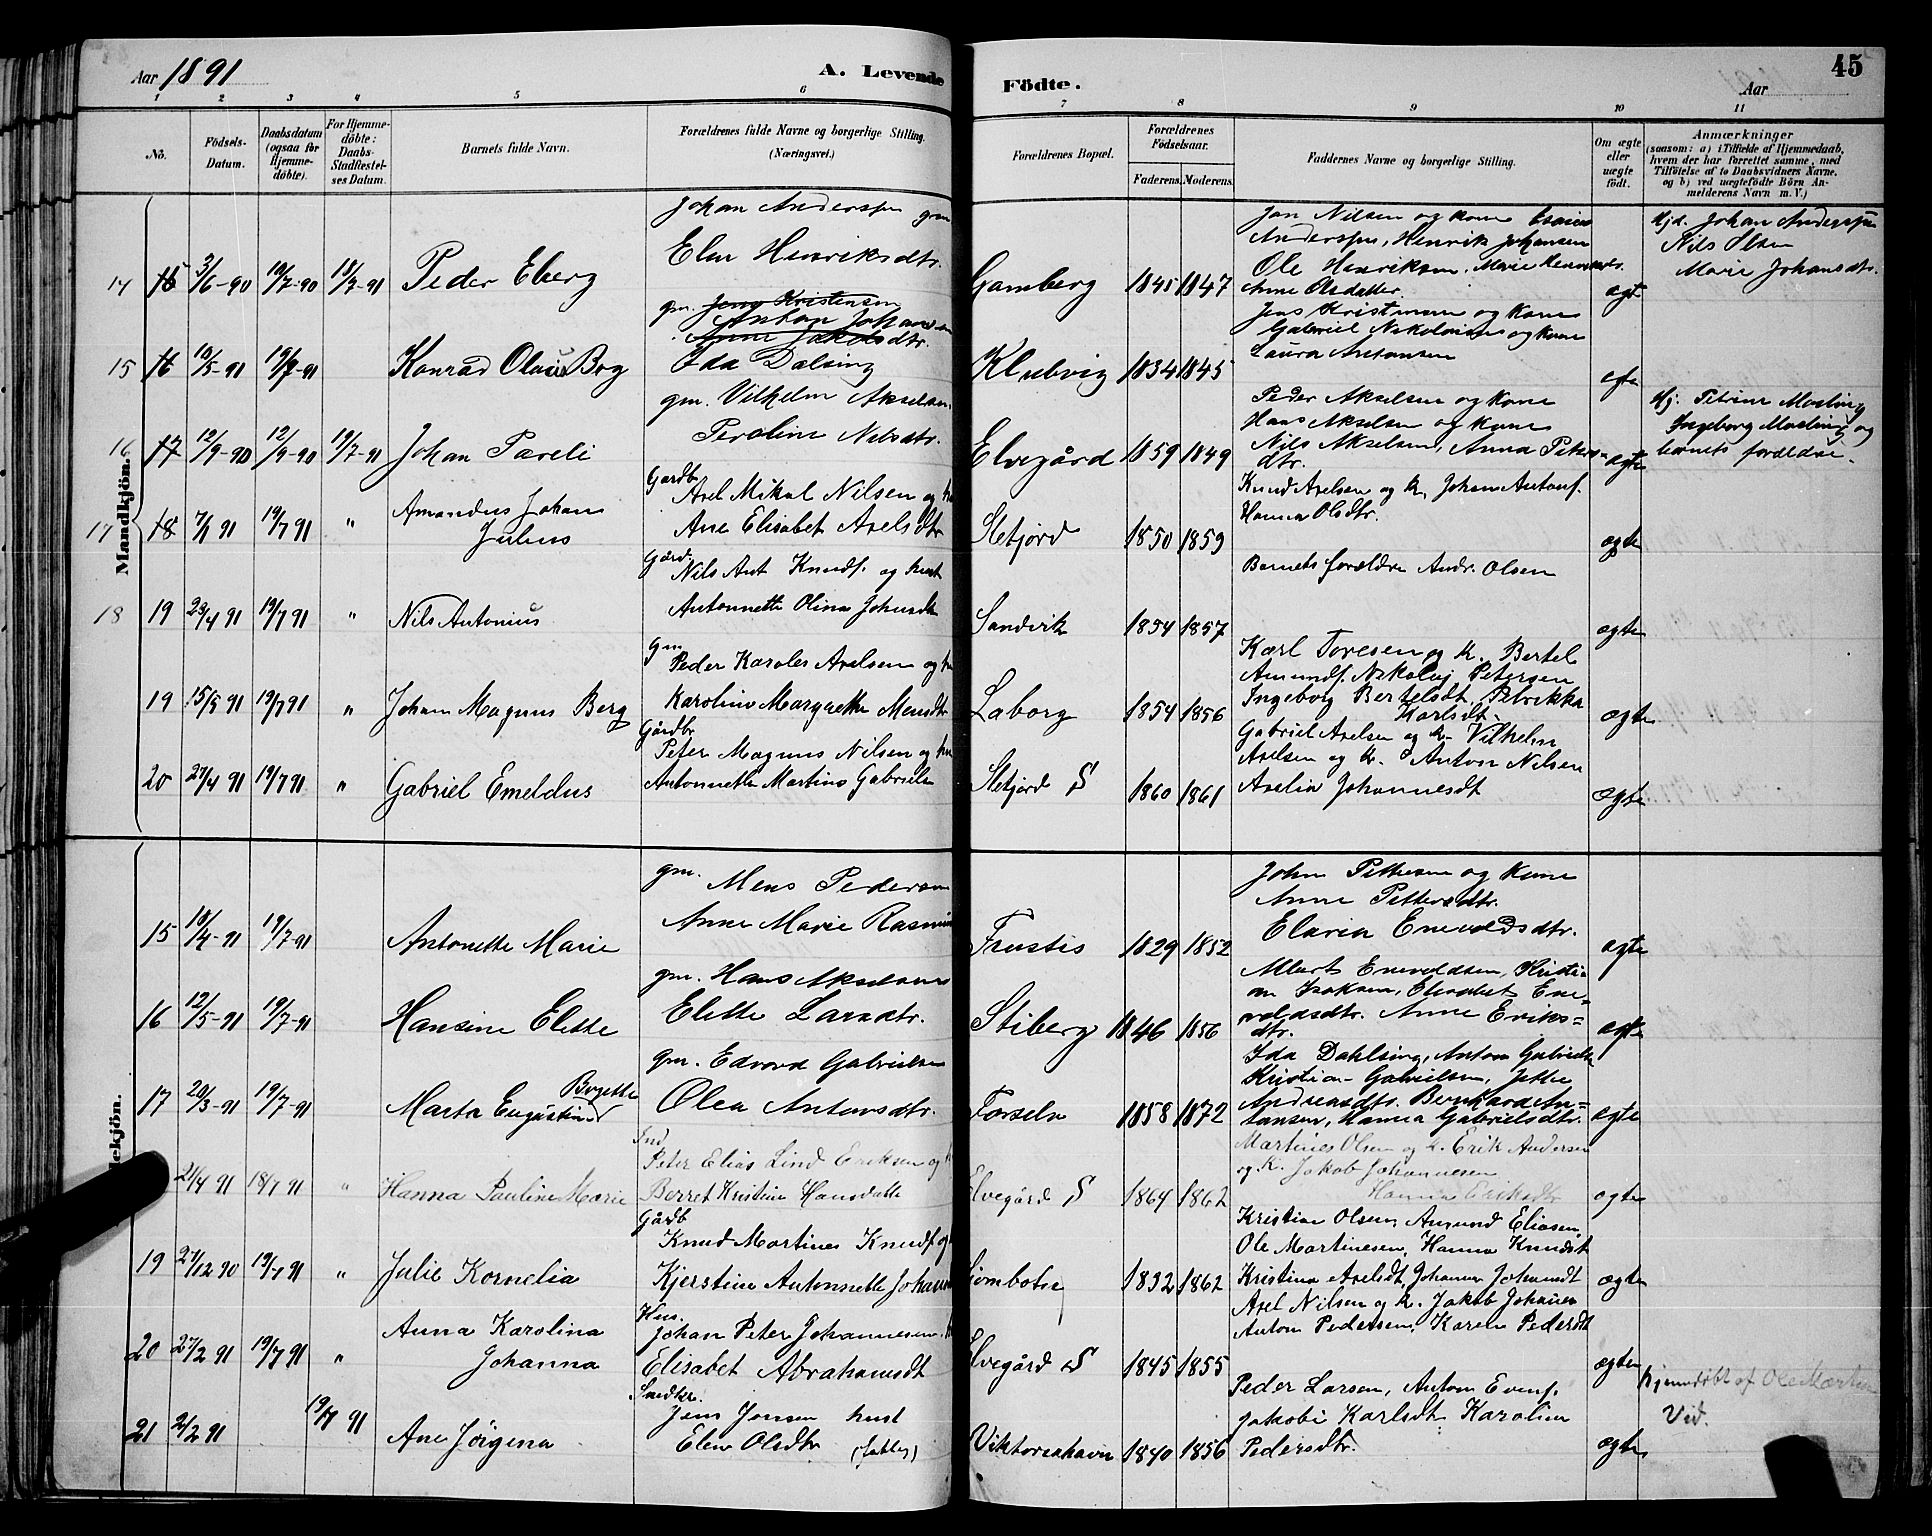 Aar 1891
A. Levende
Födte.
Aar
45
1 2 3 4 5 6 7 8 9 10 11
No.
Födsels-
Datum.
Daabsdatum
(ogsaa for
Hjemme-
döbte).
For Hjemme-
döbte:
Daabs-
Stadfæstel-
ses Datum.
Barnets fulde Navn.
Forældrenes fulde Navne og borgerlige Stilling.
(Næringsvei.)
Forældrenes Bopæl.
Forældrenes
Födselsaar.
Faderens. Moderens.
Faddernes Navne og borgerlige Stilling.
Om ægte
eller
uægte
födt.
Anmærkninger
(saasom: a) i Tilfælde af Hjemmedaab,
hvem der har forrettet samme, med
Tilföielse af to Daabsvidners Navne,
og b) ved uægtefödte Börn An-
melderens Navn m. V.)
Mandkjön.
14 15 3/6-90 19/7-90 18/7-91 Peder Eberg
Johan Andersen gm
Elen Henriksdtr.
Gamberg 1845 1847
Jon Nilsen og kone Esaias
Andersen, Henrik Johansen
Ole Henriksen, Marie Henriksdtr.
Anne Olsdatter.
ægte
Hjd. Johan Andersen
Nils Olsen
Marie Johansdtr.
15 16 10/5-91 19/7-91 Konrad Olaus Bog
gm. Jens Kristensen
Anton Johansen
Anne Jakobsdtr.
Ida Dalsing
Klubvig 1834 1845
Jens Kristensen og kone
Gabriel Nikolaisen og kone
Laura Arntonsen
ægte
16 17 12/9-90 12/9-90 19/7-91 Johan Pareli
gm. Vilhelm Akselsen
Peroline Nilsdtr.
Elvegård 1859 1849
Peder Akselsen og kone
Hans Akselsen og kone
Nils Akselsen, Anna Peters-
dtr.
ægte
Hj. Petrine Mosling
Ingeborg Mosling og
barnets forældre.
17 18 7/1 91 19/7 91 " Amandus Johan
Julius
Gardb
Axel Mikal Nilsen og hu
Ane Elisabet Axelsdt
Sletjord 1850 1859
Knud Axelsen og k. Johan Antonf.
Hanna Olsdtr.
ægte
18 19 23/4 91 19/7 91 " Nils Antonius
Gård.
Nils Ant Knudf. og hust
Antonnette Olina Johnsdt
Sandvik 1854 1857
Barnets forældre Andr. Olsen
ægte
19 15/5 91 19/7 91 " Johan Magnus Berg
gm
Peder Karoles Axelsen og hu
Karoline Margrethe Mensdt
Laberg 1854 1856
Karl Toresen og k. Bertel
Amundf. Nikolaj Petersen
Ingeborg Bertelsdt, Petrikka
Karlsdt.
ægte
20 27/4 91 19/7 91 " Gabriel Emeldus
Gårdbr
Peter Magnus Nilsen og hu
Antonnette Martine Gabrielsd
Sletjord S 1860 1861
Gabriel Axelsen og k. Vilhelm
Axelsen og k. Anton Nilsen
Axelia Johannesdt
ægte
dekjön.
15 18/4-91 19/7-91 Antonette Marie
gm. Mens Pedersen
Anne Marie Rasmus
Frustis 1829 1852
John Pettersen og kone
Anne Pettersdtr.
Elaria Enevoldsdtr.
ægte
16 12/5-91 19/7-91 Hansine Elette
gm. Hans Akselsen
Elette Larsdtr.
Stiberg 1846 1856
Albert Enevoldsen, Kristi-
an Isaksen, Elisabet Ene-
voldsdtr. Anne Eriks-
dtr.
ægte
17 20/3-91 19/7-91 Marta Eugustine Bergette
gm. Edvard Gabrielsen
Olea Antonsdtr.
Forseln 1858 1872
Ida Dahlsing, Anton Gabrielsen
Kristian Gabrielsen, Jette
Andreasdtr. Bernhard An-
tonsen, Hanna Gabrielsdtr.
ægte
21/4 91 18/7 91 " Hanna Pauline Marie
Ind
Peter Elias Lind Eriksen og
Berret Kristine Hansdatte
Elvegård S 1864 1862
Martines Olsen og k. Erik Andersen
og k. Jakob Johannesen
Hanna Eriksdtr
ægte
19 27/12 90 19/7 91 " Julie Kornelia
Gårdb
Knud Martines Knudf og
Kjerstine Antonnette Johann
Sjombotn 1832 1862
Kristine Olsen, Amund Eliasen
Ole Martinesen, Hanna Knudsdt
Kristina Axelsdt, Johanna Johansdt
ægte
20 27/2 91 19/7 91 " Anna Karolina
Johanna
Hus.
Johan Peter Johannesen
Elisabet Abrahamsdt
Elvegård S 1845 1855
Axel Nilsen og k. Jakob Johanes
Anton Pedersen, Karen Pedersdt
ægte
21 2/2 91 19/7 91 Ane Jörgena
Snedker.
Jens Jonsen hust
Elen Olsdtr
Viktoriahavn 1840 1856
Peder Larsen, Anton Evenf.
Jakobi Karlsdt Karoline
Pedersdtr.
ægte
hjemdöbt af Ole Martin
Vid.